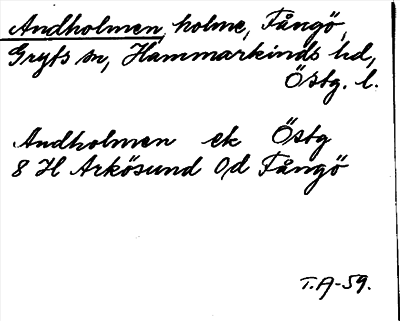 Andholmen, holme, Fångö,
Gryts sn, Hammarkinds hd,
Östg. l.
Andholmen ek Östg
8 H Arkösund O,d Fångö
T.A-59.